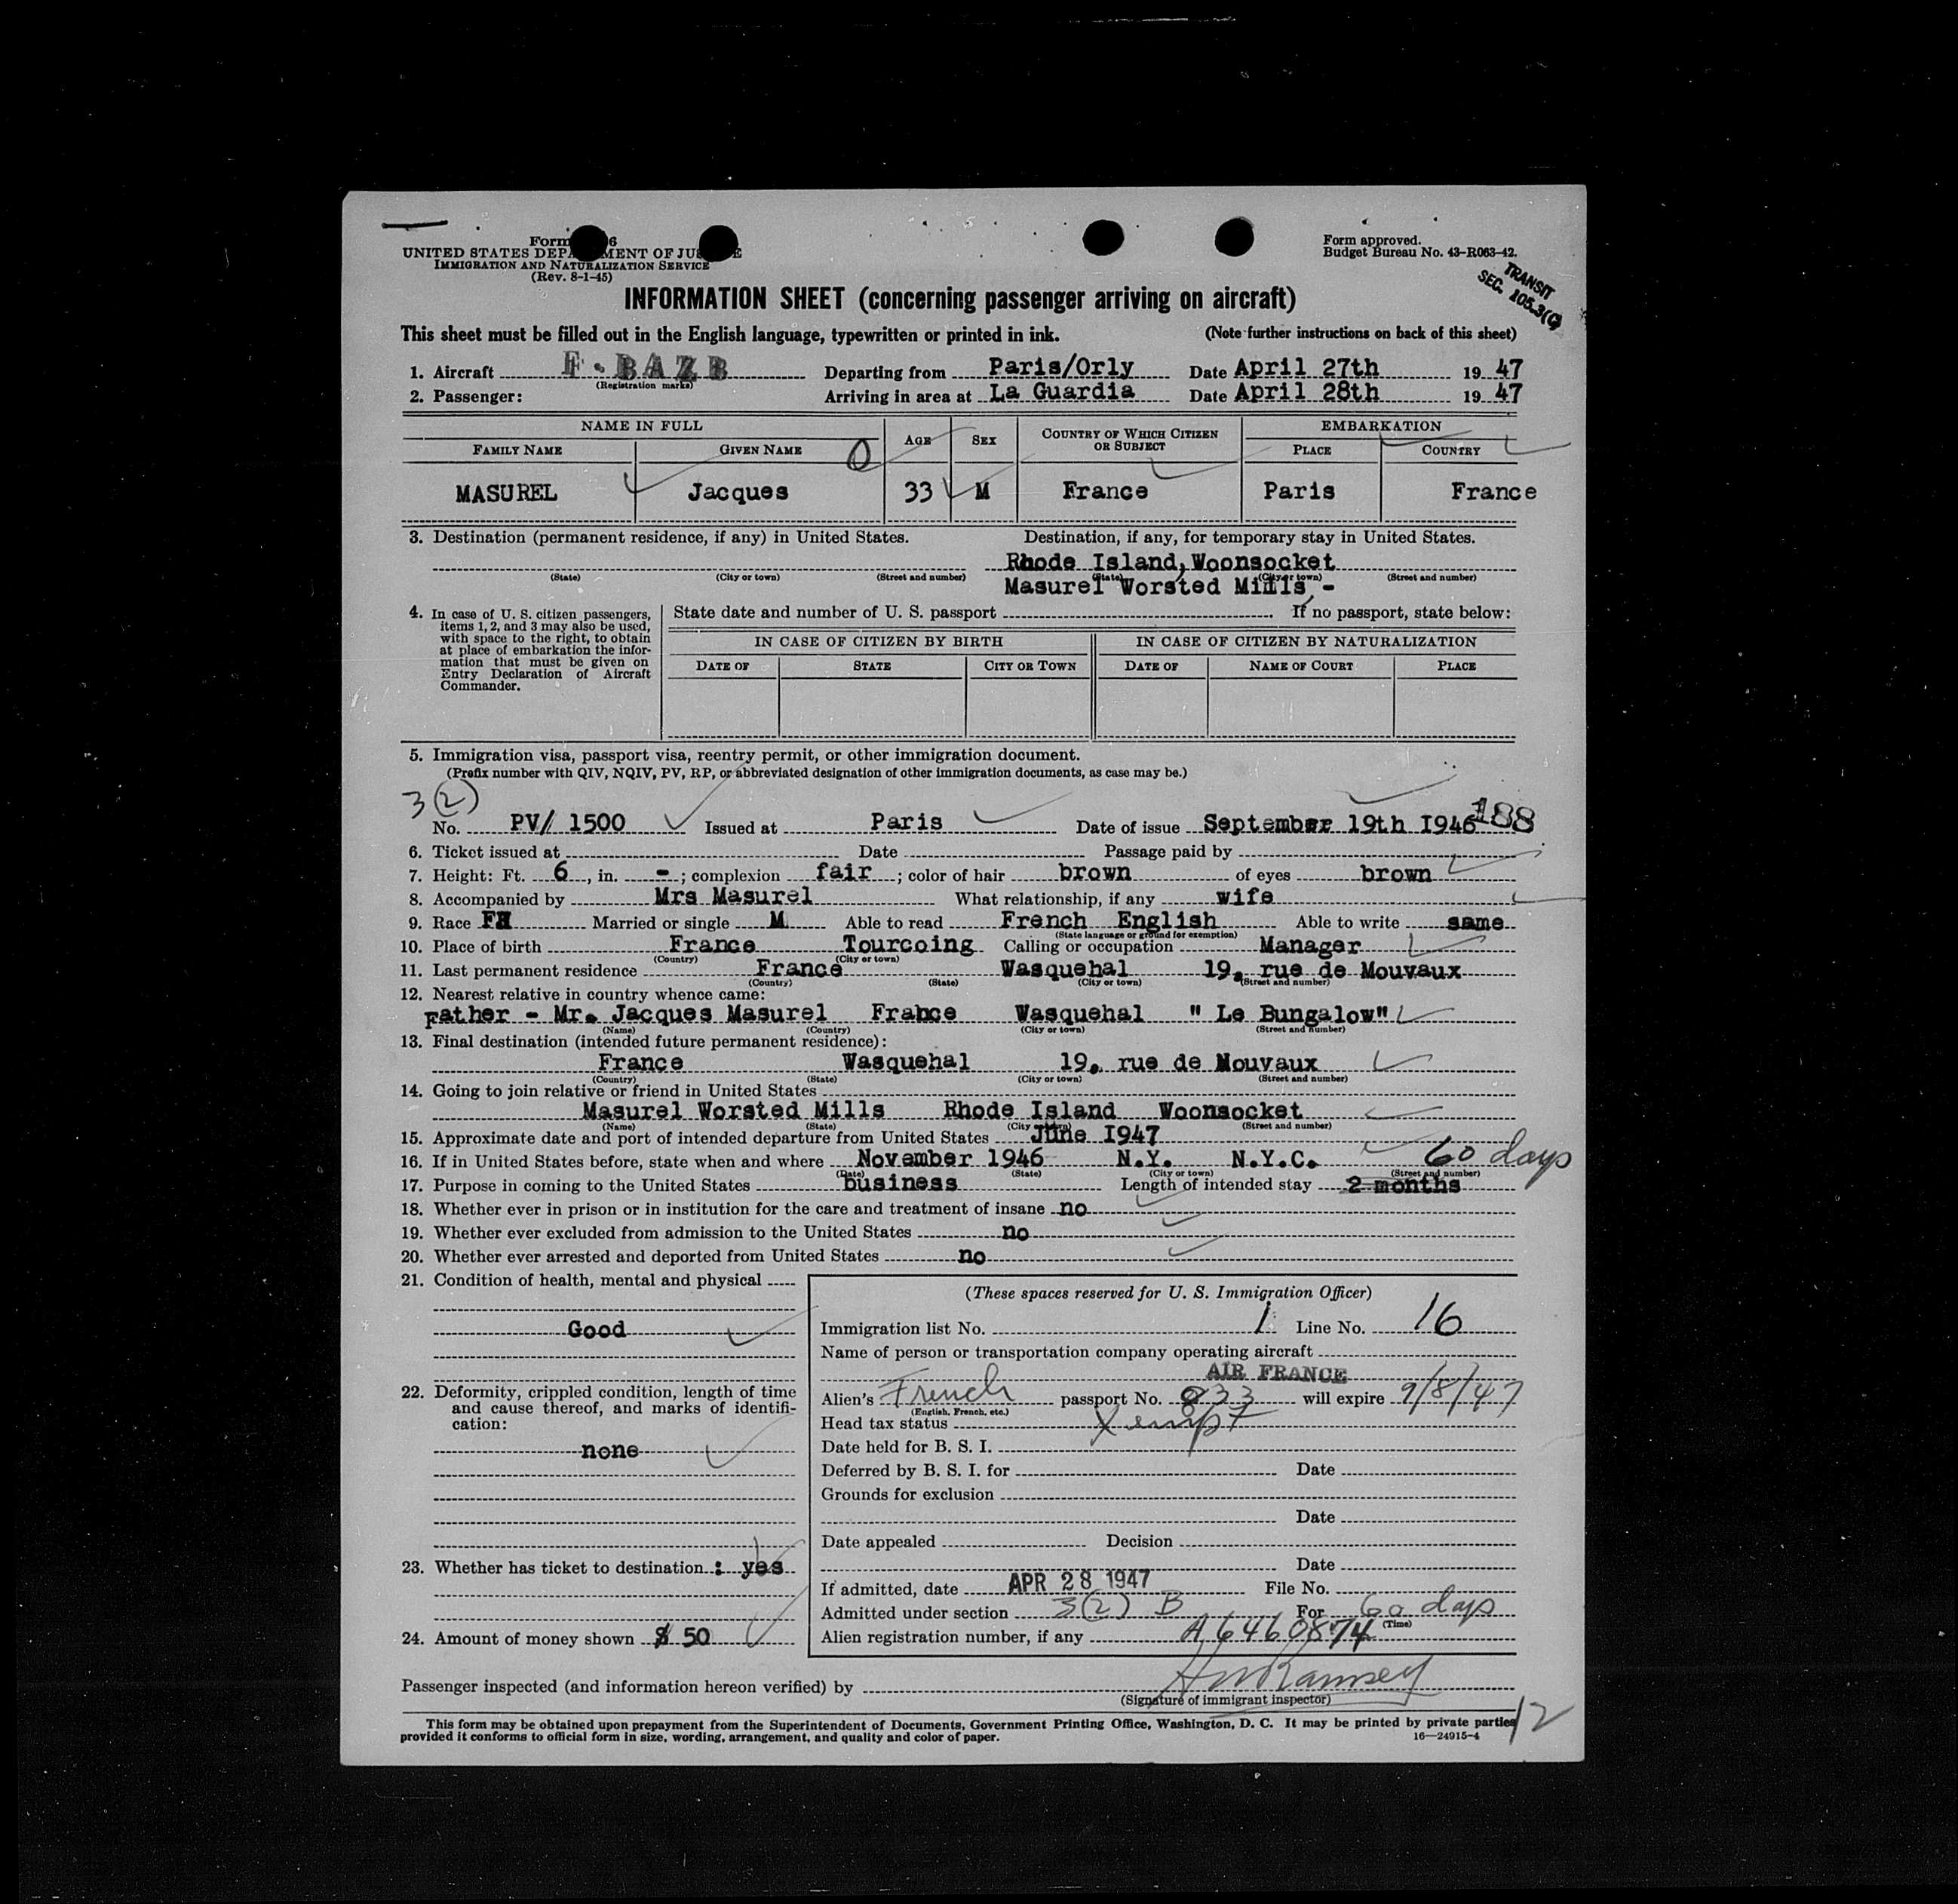 Form 6
UNITED STATES DEPA MENT OF JU E
IMMIGRATION AND NATURALIZATION SERVICE
(Rev. 8-1-45)
Form approved.
Budget Bureau No. 43-R063-42.
TRANSIT
SEC. 105.3(C)
INFORMATION SHEET (concerning passenger arriving on aircraft)
This sheet must be filled out in the English language, typewritten or printed in ink. (Note further instructions on back of this sheet)
1. Aircraft F-BAZB Departing from Paris/Orly Date April 27th 19 47
(Registration marks)
2. Passenger: Arriving in area at La Guardia Date April 28th 19 47
NAME IN FULL AGE SEX COUNTRY OF WHICH CITIZEN OR SUBJECT EMBARKATION
FAMILY NAME GIVEN NAME PLACE COUNTRY
MASUREL Jacques 33 M France Paris France
3. Destination (permanent residence, if any) in United States. Destination, if any, for temporary stay in United States.
Rhode Island, Woonsocket
(State) (City or town) (Street and number) (State) (City or town) (Street and number)
Masurel Worsted Mills -
4. In case of U. S. citizen passengers, items 1, 2, and 3 may also be used, with space to the right, to obtain at place of embarkation the information that must be given on Entry Declaration of Aircraft Commander.
State date and number of U. S. passport If no passport, state below:
IN CASE OF CITIZEN BY BIRTH IN CASE OF CITIZEN BY NATURALIZATION
DATE OF STATE CITY OR TOWN DATE OF NAME OF COURT PLACE
5. Immigration visa, passport visa, reentry permit, or other immigration document.
(Prefix number with QIV, NQIV, PV, RP, or abbreviated designation of other immigration documents, as case may be.)
3(2)
No. PV/ 1500 Issued at Paris Date of issue September 19th 1946 188
6. Ticket issued at Date Passage paid by
7. Height: Ft. 6, in. -; complexion fair; color of hair brown of eyes brown
8. Accompanied by Mrs Masurel What relationship, if any wife
9. Race FH Married or single M Able to read French English Able to write same
(State language or ground for exemption)
10. Place of birth France Tourcoing Calling or occupation Manager
(Country) (City or town)
11. Last permanent residence France Wasquehal 19, rue de Mouvaux
(Country) (State) (City or town) (Street and number)
12. Nearest relative in country whence came:
Father - Mr. Jacques Masurel France Wasquehal " Le Bungalow"
(Name) (Country) (City or town) (Street and number)
13. Final destination (intended future permanent residence):
France Wasquehal 19, rue de Mouvaux
(Country) (State) (City or town) (Street and number)
14. Going to join relative or friend in United States
Masurel Worsted Mills Rhode Island Woonsocket
(Name) (State) (City or town) (Street and number)
15. Approximate date and port of intended departure from United States June 1947
16. If in United States before, state when and where November 1946 N.Y. N.Y.C. 60 days
(Date) (State) (City or town) (Street and number)
17. Purpose in coming to the United States business Length of intended stay 2 months
18. Whether ever in prison or in institution for the care and treatment of insane no
19. Whether ever excluded from admission to the United States no
20. Whether ever arrested and deported from United States no
21. Condition of health, mental and physical
Good
22. Deformity, crippled condition, length of time and cause thereof, and marks of identification:
none
23. Whether has ticket to destination: yes
24. Amount of money shown $ 50
(These spaces reserved for U. S. Immigration Officer)
Immigration list No. 1 Line No. 16
Name of person or transportation company operating aircraft
AIR FRANCE
Alien's French passport No. 833 will expire 9/8/47
(English, French, etc.)
Head tax status Xempt
Date held for B. S. I.
Deferred by B. S. I. for Date
Grounds for exclusion
Date
Date appealed Decision
Date
If admitted, date APR 28 1947 File No.
Admitted under section 3(2) B For 60 days
(Time)
Alien registration number, if any A6460874
Passenger inspected (and information hereon verified) by
(Signature of immigrant inspector)
12
This form may be obtained upon prepayment from the Superintendent of Documents, Government Printing Office, Washington, D. C. It may be printed by private parties
provided it conforms to official form in size, wording, arrangement, and quality and color of paper. 16—24915-4